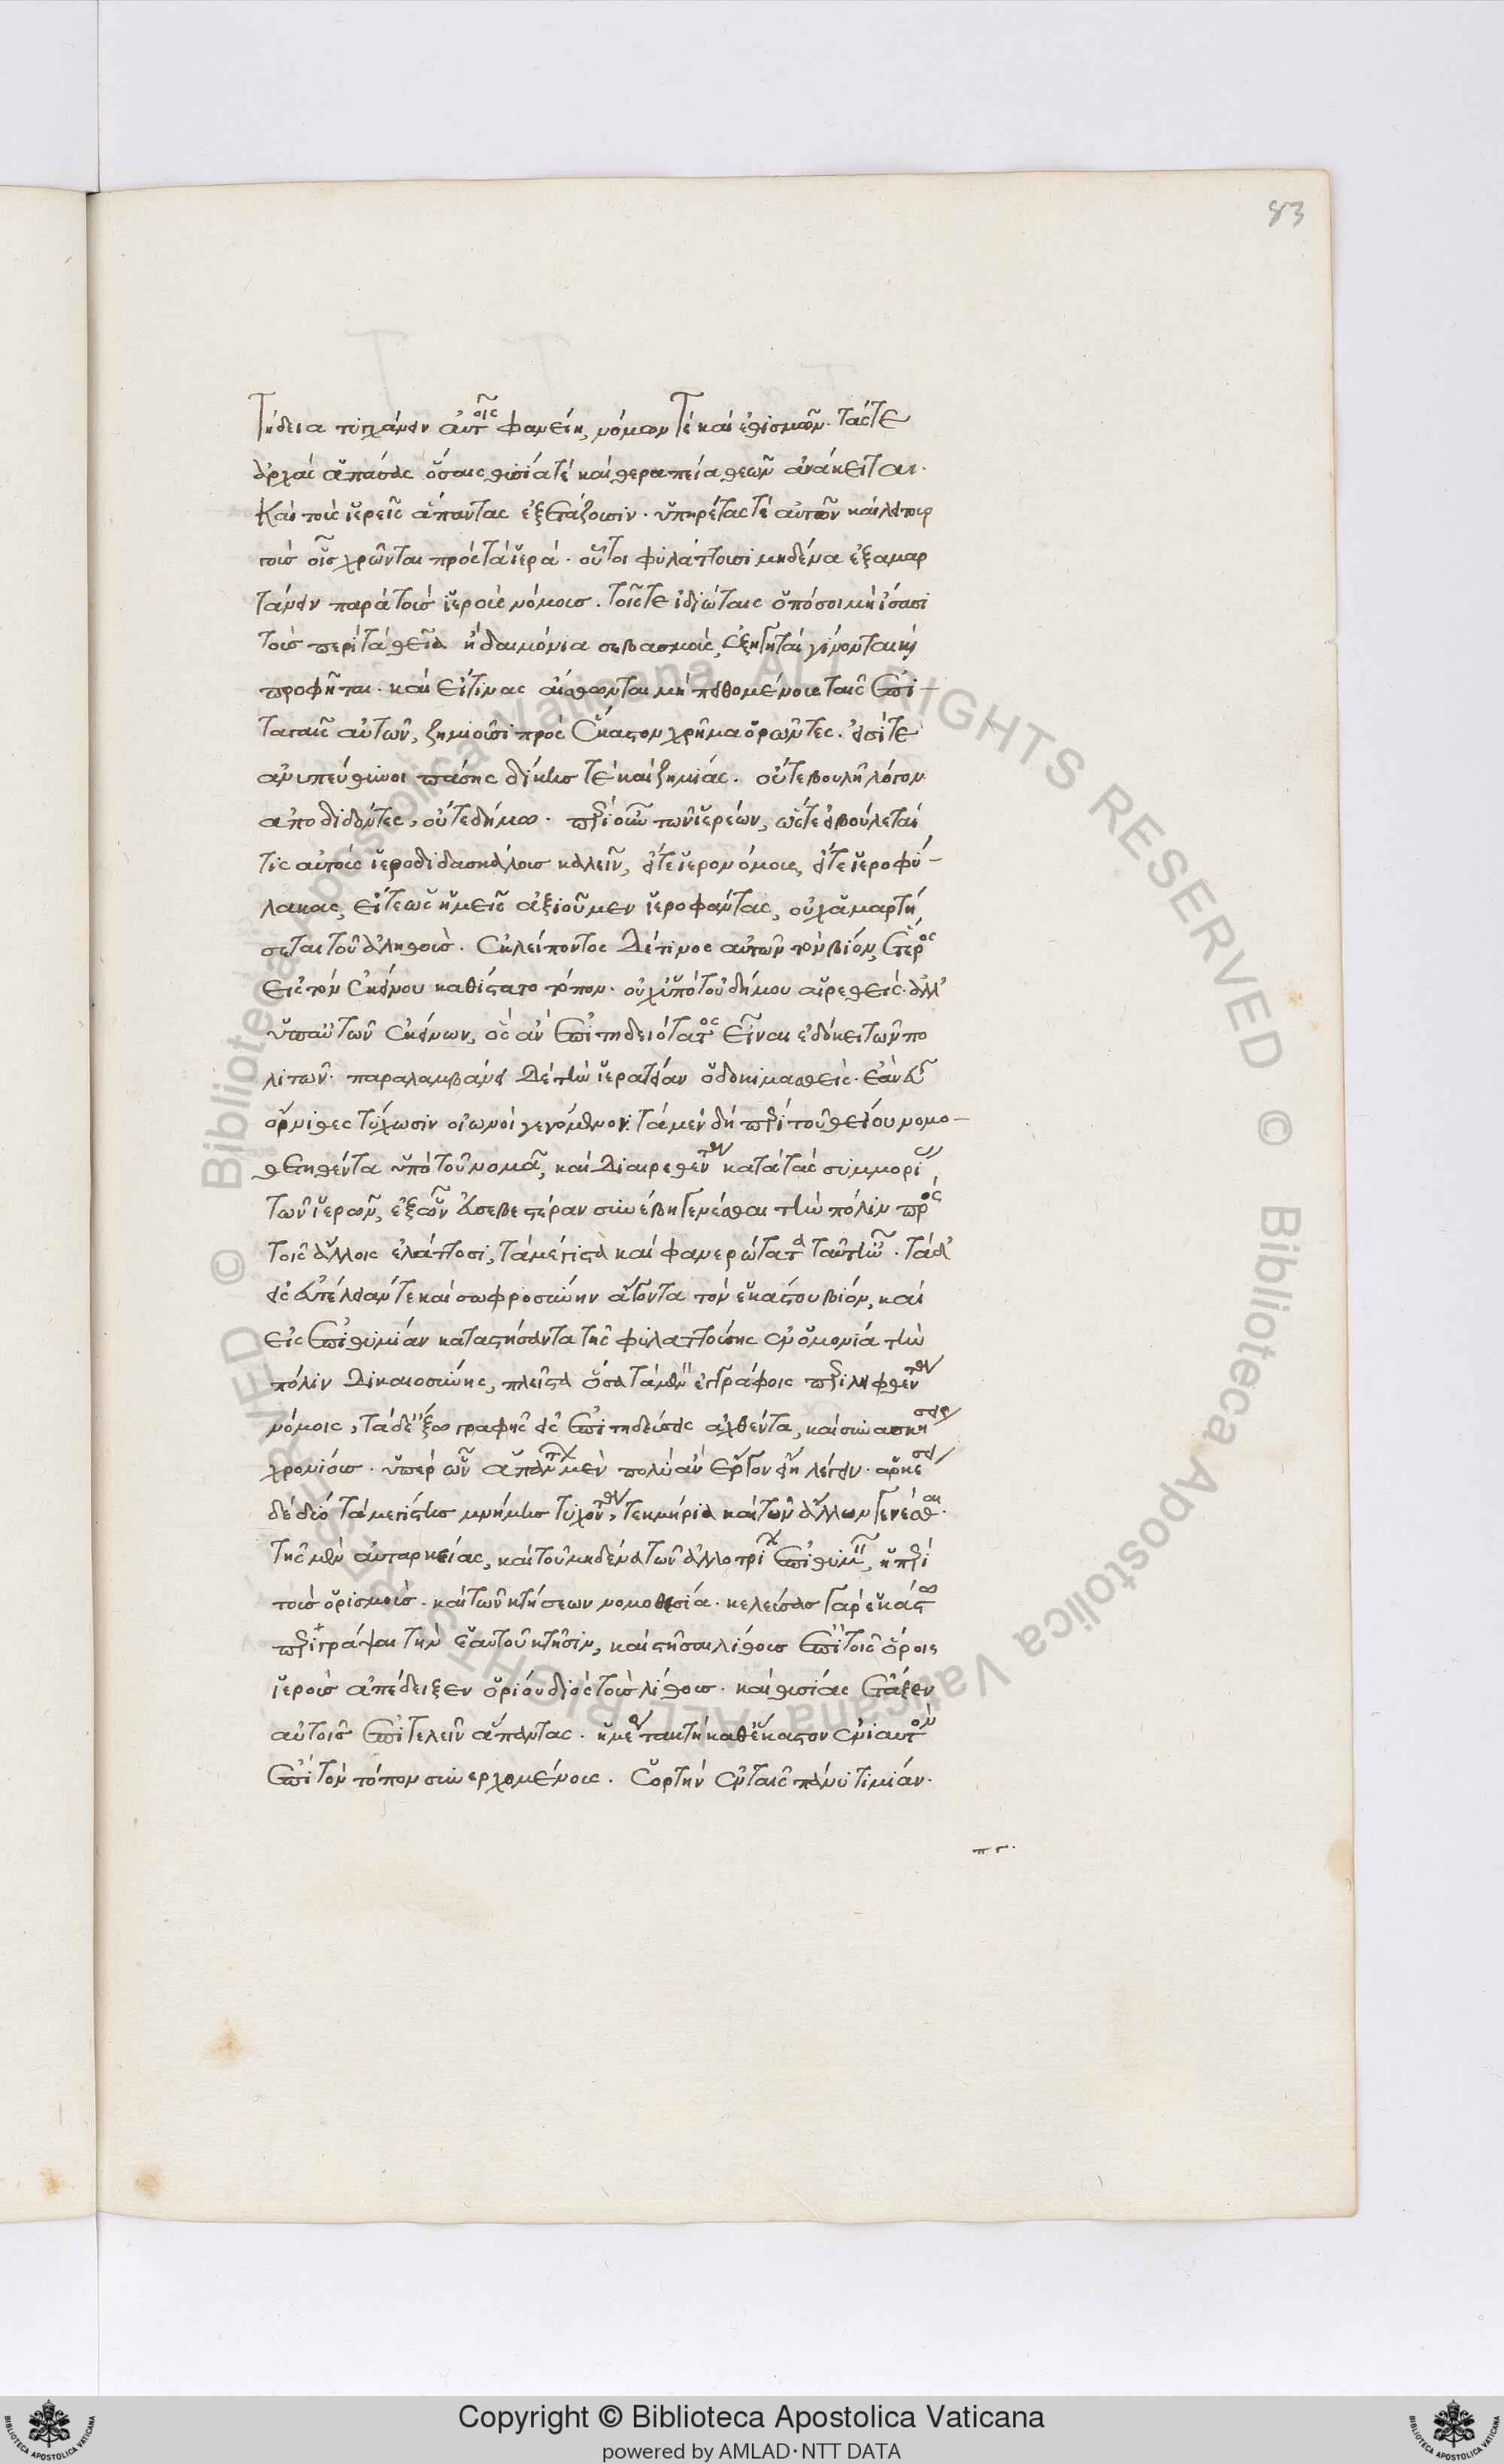 83
τήδεια τυγχάνειν αὐτοῖς φανείη, νόμων τὲ καὶ ἐθισμῶν. τάς τε
ἀρχὰς ἁπάσας ὅσαις θυσία τὲ καὶ θεραπεία θεῶν ἀνάκειται.
καὶ τοὺς ἱερεῖς ἅπαντας ἐξετάζουσιν. ὑπηρέτας τὲ αὐτῶν καὶ λειτουρ
γοὺς οἷς χρῶνται πρὸς τὰ ἱερὰ. οὗτοι φυλάττουσι μηδένα ἐξαμαρ
τάνειν παρὰ τοὺς ἱεροὺς νόμους. τοῖς τε ἰδιώταις ὁπόσοι μὴ ἴσασι
τοὺς περὶ τὰ θεῖα ἢ δαιμόνια σεβασμοὺς, ἐξηγηταὶ γίνονται καὶ
προφῆται. καὶ εἴ τινας αἴσθωνται μὴ πειθομένους ταῖς ἐπι-
ταγαῖς αὐτῶν, ζημιοῦσι πρὸς ἕκαστον χρῆμα ὁρῶντες. εἰσί τε
ἀνυπεύθυνοι πάσης δίκης τὲ καὶ ζημίας. οὔτε βουλῆ λόγον
ἀποδιδόντες, οὔτε δήμω. περὶ οὖν τῶν ἱερέων, ὥς τε εἰ βούλεταί
τις αὐτοὺς ἱεροδιδασκάλους καλεῖν, εἴτε ἱερονόμους, εἴτε ἱεροφύ-
λακας, εἴτε ὡς ἡμεῖς ἀξιοῦμεν ἱεροφάντας, οὐχ ἁμαρτή
σεται τοῦ ἀληθοῦς. ἐκλείποντος δέ τινος αὐτῶν τὸν βίον, ἕτερος
εἰς τὸν ἐκείνου καθίστατο τόπον. οὐχ ὑπὸ τοῦ δήμου αἱρεθεὶς. ἀλλ'
ὑπ' αὐτῶν ἐκείνων, ὃς ἂν ἐπιτηδειότατος εἶναι ἐδόκει τῶν πο
λιτῶν. παραλαμβάνει δὲ τὴν ἱερατείαν ὁ δοκιμασθεὶς. ἐὰν αὐτῶ
ὄρνιθες τύχωσιν οἰωνοὶ γενόμενοι. τὰ μὲν δὴ περὶ τοῦ θείου νομο-
θετηθέντα ὑπὸ τοῦ νομᾶ, καὶ διαιρεθέντα κατὰ τὰς συμμορίας
τῶν ἱερῶν, ἐξ ὧν εὐσεβεστέραν συνέβη γενέσθαι τὴν πόλιν πρὸς
τοῖς ἄλλοις ἐλάττοσι, τὰ μέγιστα καὶ φανερώτατα ταῦτ' ἦν. τὰ δ'
εἰς εὐτέλειάν τε καὶ σωφροσύνην ἄγοντα τὸν ἑκάστου βίον, καὶ
εἰς ἐπιθυμίαν καταστήσαντα τῆς φυλαττούσης ἐν ὁμονία τὴν
πόλιν δικαιοσύνης, πλεῖστα ὅσα τὰ μὲν ἐγγράφοις περιληφθέντα
νόμοις, τὰ δ' ἔξω γραφῆς εἰς ἐπιτηδεύσεις ἀχθέντα, καὶ συνασκήσεις
χρονίους. ὑπὲρ ὧν ἁπάντων μὲν πολὺ ἂν ἔργον εἴη λέγειν. ἀρκέσει
δὲ δύο τὰ μεγίστης μνήμης τυχόντα, τεκμήρια καὶ τῶν ἄλλων γενέσθαι.
τῆς μὲν αὐταρκείας, καὶ τοῦ μηδένα τῶν ἀλλοτρίων ἐπιθυμεῖν, ἡ περὶ
τοὺς ὁρισμοὺς. καὶ τῶν κτήσεων νομοθεσία. κελεύσας γὰρ ἑκάστω
περιγράψαι τὴν ἑαυτοῦ κτῆσιν, καὶ στῆσαι λίθους ἐπὶ τοῖς ὅροις
ἱεροὺς ἀπέδειξεν ὁρίου διὸς τοὺς λίθους. καὶ θυσίας ἔταξεν
αὐτοῖς ἐπιτελεῖν ἅπαντας. ἡμέρα τακτῆ καθ' ἕκαστον ἐνιαυτὸν
ἐπὶ τὸν τόπον συνερχομένοις. ἑορτὴν ἐν ταῖς πάνυ τιμίαν.
πγ.